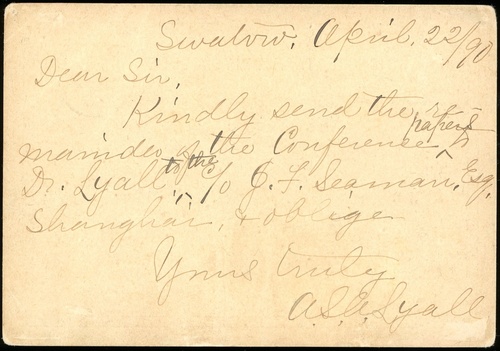 Swatow, April, 22/90
Dear Sir,
Kindly send the re-
mainder of the Conference ^ papers
Dr. Lyall, ^ to the c/o J. F. Seaman, Esq,
Shanghai, & oblige
Yours truly
A. Lyall